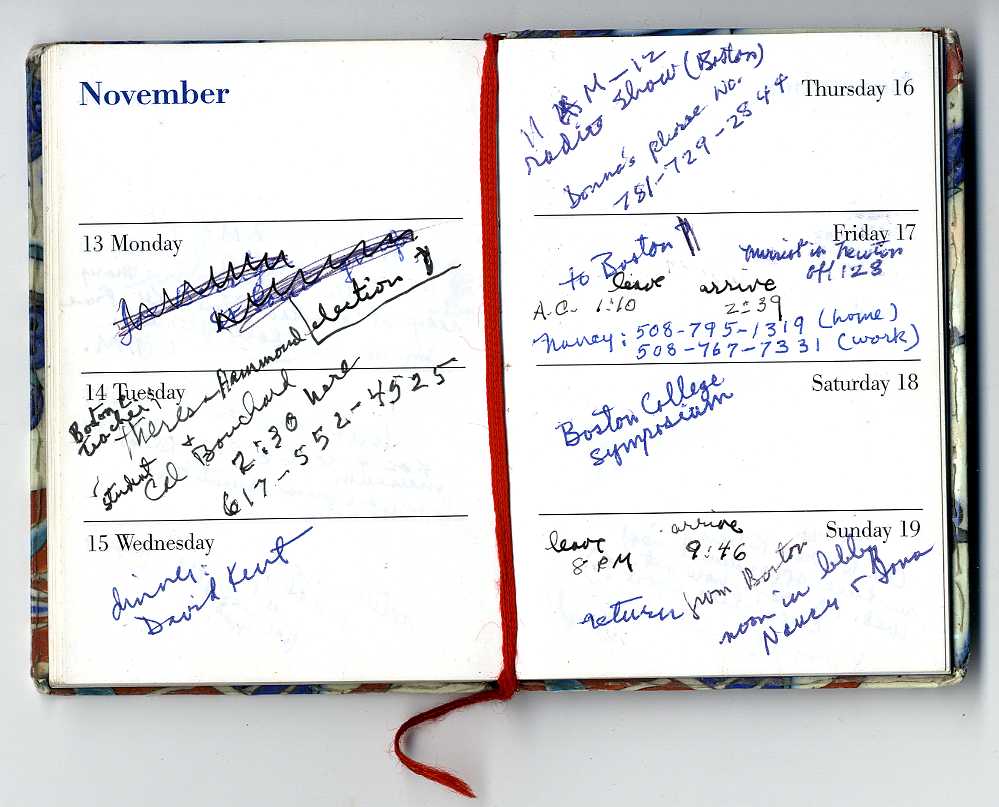 November
13 Monday
election
14 Tuesday
Boston
teacher
Theresa Hammond
+
student
Cal Bouchard
2:30 here
617-552-4525
15 Wednesday
dinner:
David Kent
Thursday 16
11 AM-12
radio show (Boston)
Donna's phone no.
781-729-2844
Friday 17
to Boston
Marriot in Newton
off 128
leave arrive
A.C. 1:10 2:39
Nancy: 508-795-1319 (home)
508-767-7331 (work)
Saturday 18
Boston College
Symposium
Sunday 19
leave arrive
8 PM 9:46
return from Boston
noon in lobby
Nancy + Donna